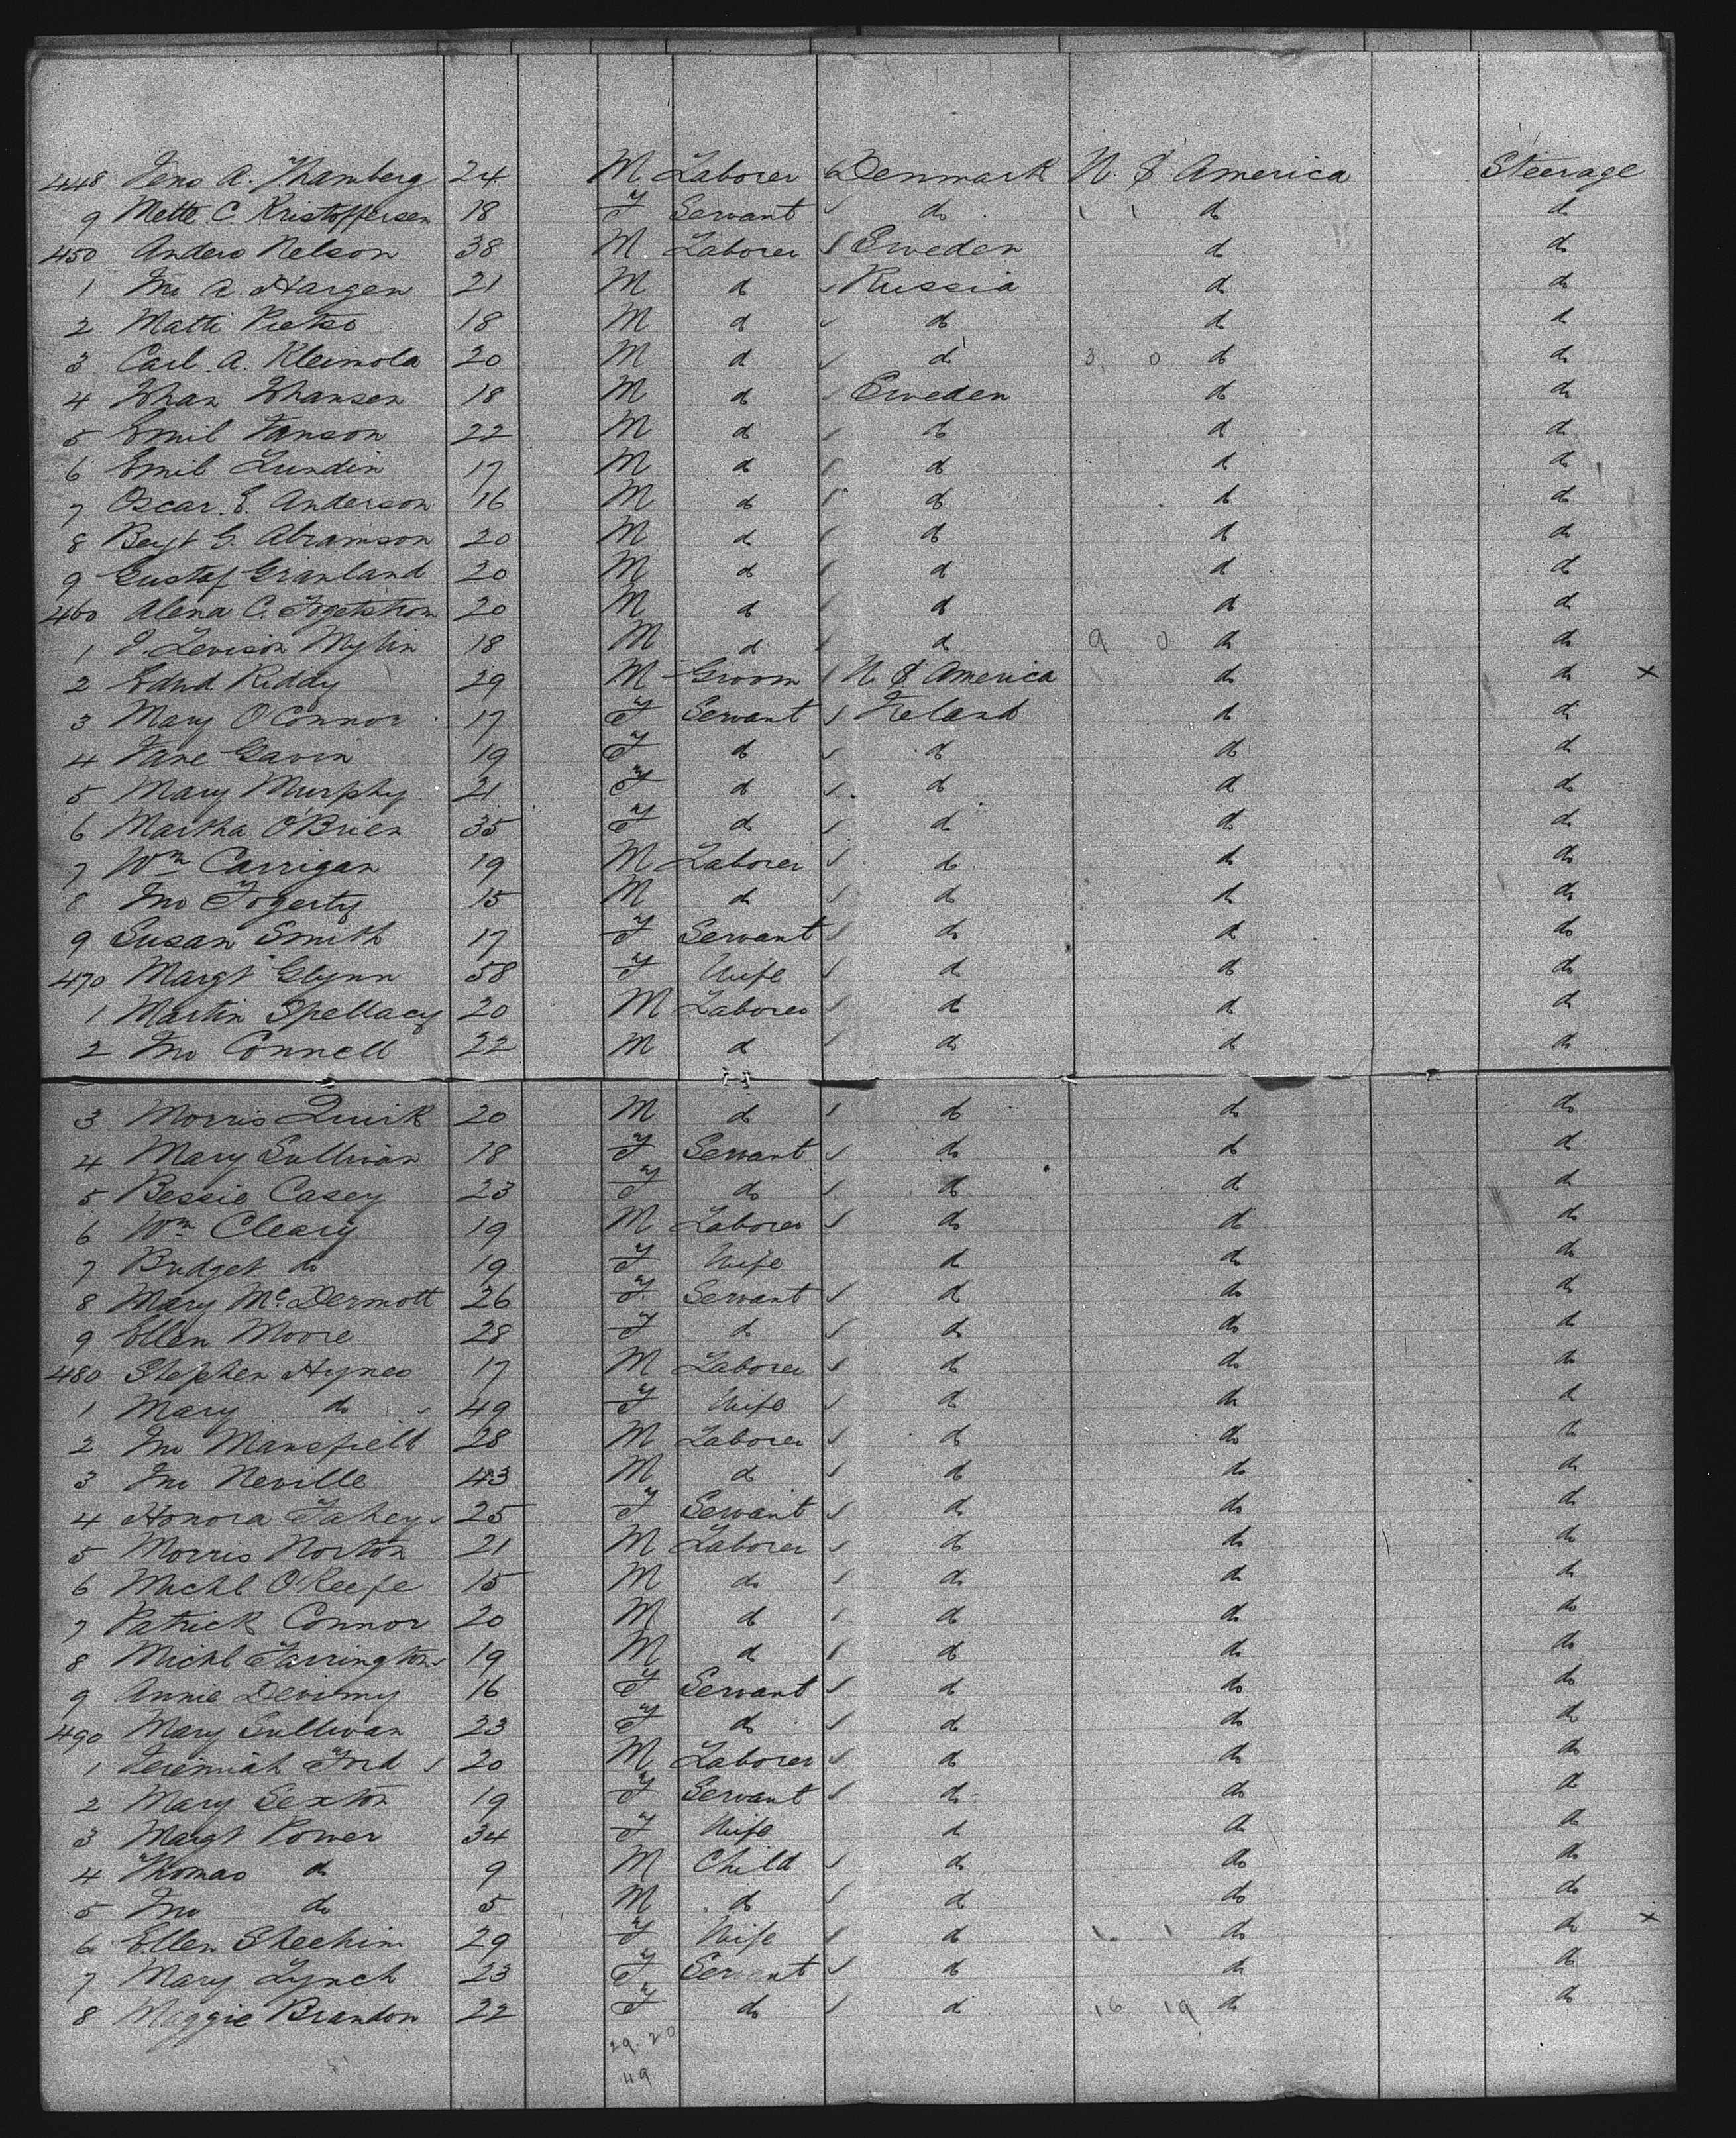 448 Jens A. Thamberg 24 M Laborer Denmark N. S America Steerage
9 Mette C. Kristoffersen 18 F Servant do do do
450 Anders Nelson 38 M Laborer Sweden do do
1 Jno A. Hargen 21 M do Russia do do
2 Matti 18 M do do do do
3 Carl A. Kleimola 20 M do do do do
4 Johan Johansen 18 M do Sweden do do
5 Emil Janson 22 M do do do do
6 Emil Lundin 17 M do do do do
7 Oscar E. Anderson 16 M do do do do
8 Beyt G. Abramson 20 M do do do do
9 Gustaf Granland 20 M do do do do
460 Alena C. 20 M do do do do
1 Levison Mylin 18 M do do do do
2 Edwd Riddy 29 M Groom N. S America do do x
3 Mary O'Connor 17 F Servant Ireland do do
4 Jane Gavin 19 F do do do do
5 Mary Murphy 21 F do do do do
6 Martha O'Brien 35 F do do do do
7 Wm Carrigan 19 M Laborer do do do
8 Jno Fogerty 15 M do do do do
9 Susan Smith 17 F Servant do do do
470 Margt Glynn 58 F Wife do do do
1 Martin Spellacy 20 M Laborer do do do
2 Jno Connell 22 M do do do do
3 Morris Quirk 20 M do do do do
4 Mary Sullivan 18 F Servant do do do
5 Bessie Casey 23 F do do do do
6 Wm Cleary 19 M Laborer do do do
7 Bridget do 19 F Wife do do do
8 Mary McDermott 26 F Servant do do do
9 Ellen Moore 28 F do do do do
480 Stephen Hynes 17 M Laborer do do do
1 Mary do 49 F Wife do do do
2 Jno Mansfield 28 M Laborer do do do
3 Jno Neville 43 M do do do do
4 Honora Fahey 25 F Servant do do do
5 Morris Norton 21 M Laborer do do do
6 Michl O'Keefe 15 M do do do do
7 Patrick Connor 20 M do do do do
8 Michl Farrington 19 M do do do do
9 Annie 16 F Servant do do do
490 Mary Sullivan 23 F do do do do
1 Jeremiah Ford 20 M Laborer do do do
2 Mary Sexton 19 F Servant do do do
3 Margt Power 34 F Wife do do do
4 Thomas do 9 M Child do do do
5 Jno do 5 M do do do do
6 Ellen Sheehim 29 F Wife do do do x
7 Mary Lynch 23 F Servant do do do
8 Maggie Brandon 22 F do do 16 19 do do
29. 20
49